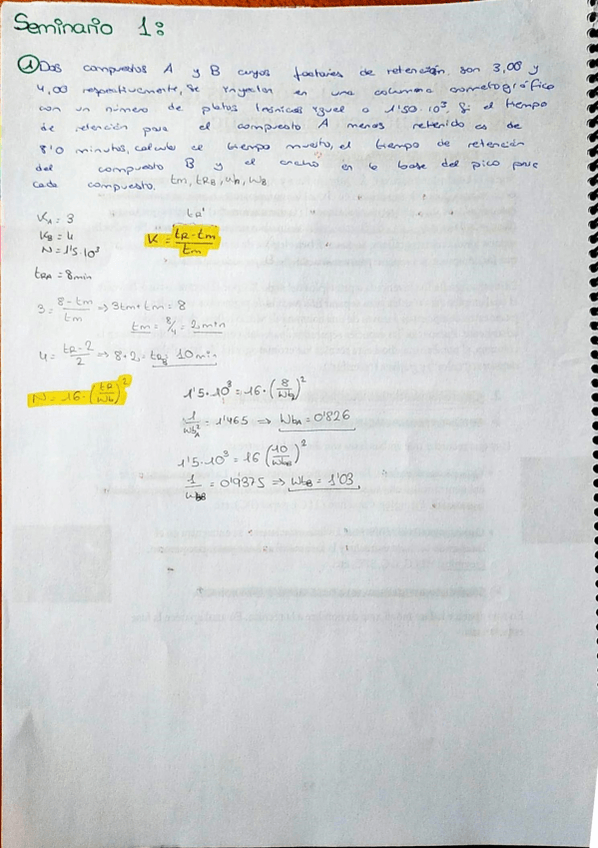 Seminario 1:
① Dos compuestos A y B cuyos factores de retención son 3,00 y
4,00 respectivamente, se inyectan en una columna cromatográfica
con un número de platos teóricos igual a 1'50·10³. Si el tiempo
de retención para el compuesto A menos retenido es de
8'0 minutos, calcula el tiempo muerto, el tiempo de retención
del compuesto B y el ancho en la base del pico para
cada compuesto. tm, tRB, wA, wB
KA = 3
KB = 4
N = 1'5·10³
tRA = 8min
tR'
K = tR - tm / tm
3 = 8 - tm / tm => 3tm + tm = 8
tm = 8/4 = 2min
4 = tR - 2 / 2 => 8+2 = tRB 10min
N = 16·(tR/Wb)²
1'5·10³ = 16·(8/Wb)²
1/WbA² = 1'465 => WbA = 0'826
1'5·10³ = 16(10/WbB)²
1/WbB = 0'9375 => WbB = 1'03